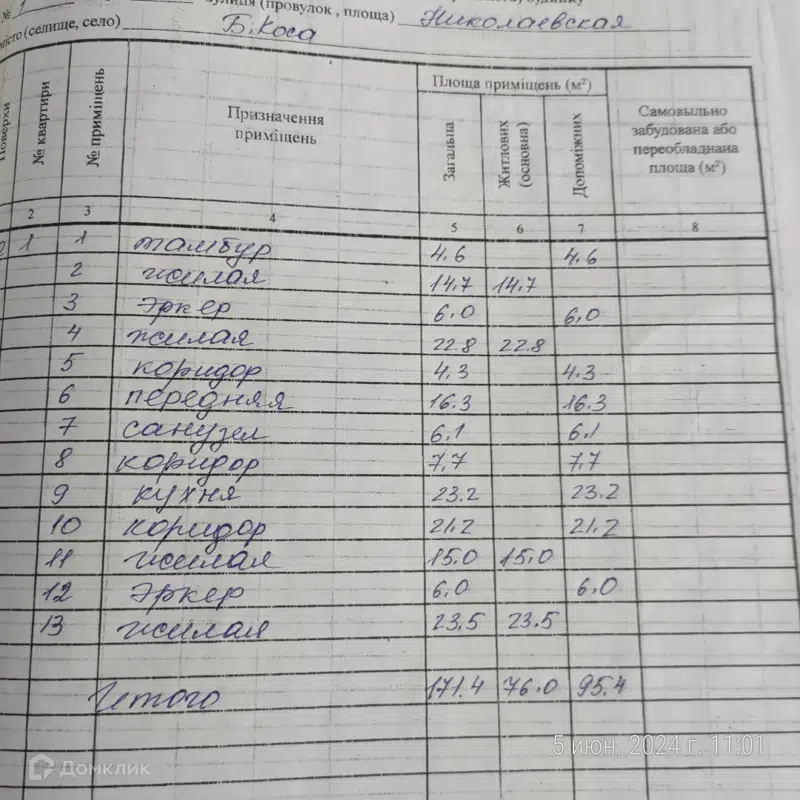 № 1
(провулок, площа) Николаевская
місто (селище, село) Б.Коса
Поверхи № квартири № приміщень Призначення приміщень Площа приміщень (м²) Самовыльно забудована або переобладнана площа (м²)
Загальна Житлових (основна) Допоміжних
2 3 4 5 6 7 8
1 1 тамбур 4.6 4.6
2 жилая 14.7 14.7
3 эркер 6.0 6.0
4 жилая 22.8 22.8
5 коридор 4.3 4.3
6 передняя 16.3 16.3
7 санузел 6.1 6.1
8 коридор 7.7 7.7
9 кухня 23.2 23.2
10 коридор 21.2 21.2
11 жилая 15.0 15.0
12 эркер 6.0 6.0
13 жилая 23.5 23.5
Итого 171.4 76.0 95.4
5 июн. 2024 г. 11:01
Домклик